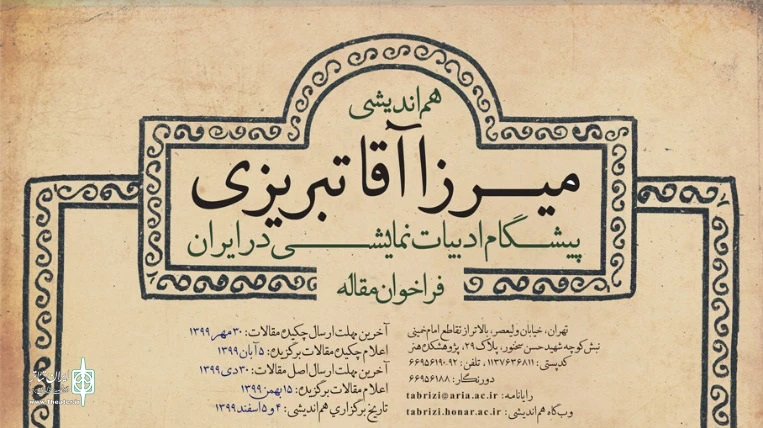 هم‌اندیشی
میرزا آقا تبریزی
پیشگام ادبیات نمایشی در ایران
فراخوان مقاله
تهران، خیابان ولیعصر، بالاتر از تقاطع امام خمینی
نبش کوچه شهید حسن سخنور، پلاک ۲۹، پژوهشکده هنر
کدپستی: ۱۱۳۷۶۳۶۸۱۱، تلفن: ۹۲-۶۶۹۵۶۱۹۰
دورنگار: ۶۶۹۵۶۱۸۸
رایانامه: tabrizi@aria.ac.ir
وب‌گاه هم‌اندیشی: tabrizi.honar.ac.ir
آخرین مهلت ارسال چکیده مقالات: ۳۰ مهر ۱۳۹۹
اعلام چکیده مقالات برگزیده: ۵ آبان ۱۳۹۹
آخرین مهلت ارسال اصل مقالات: ۳۰ دی ۱۳۹۹
اعلام مقالات برگزیده: ۱۵ بهمن ۱۳۹۹
تاریخ برگزاری هم‌اندیشی: ۴ و ۵ اسفند ۱۳۹۹